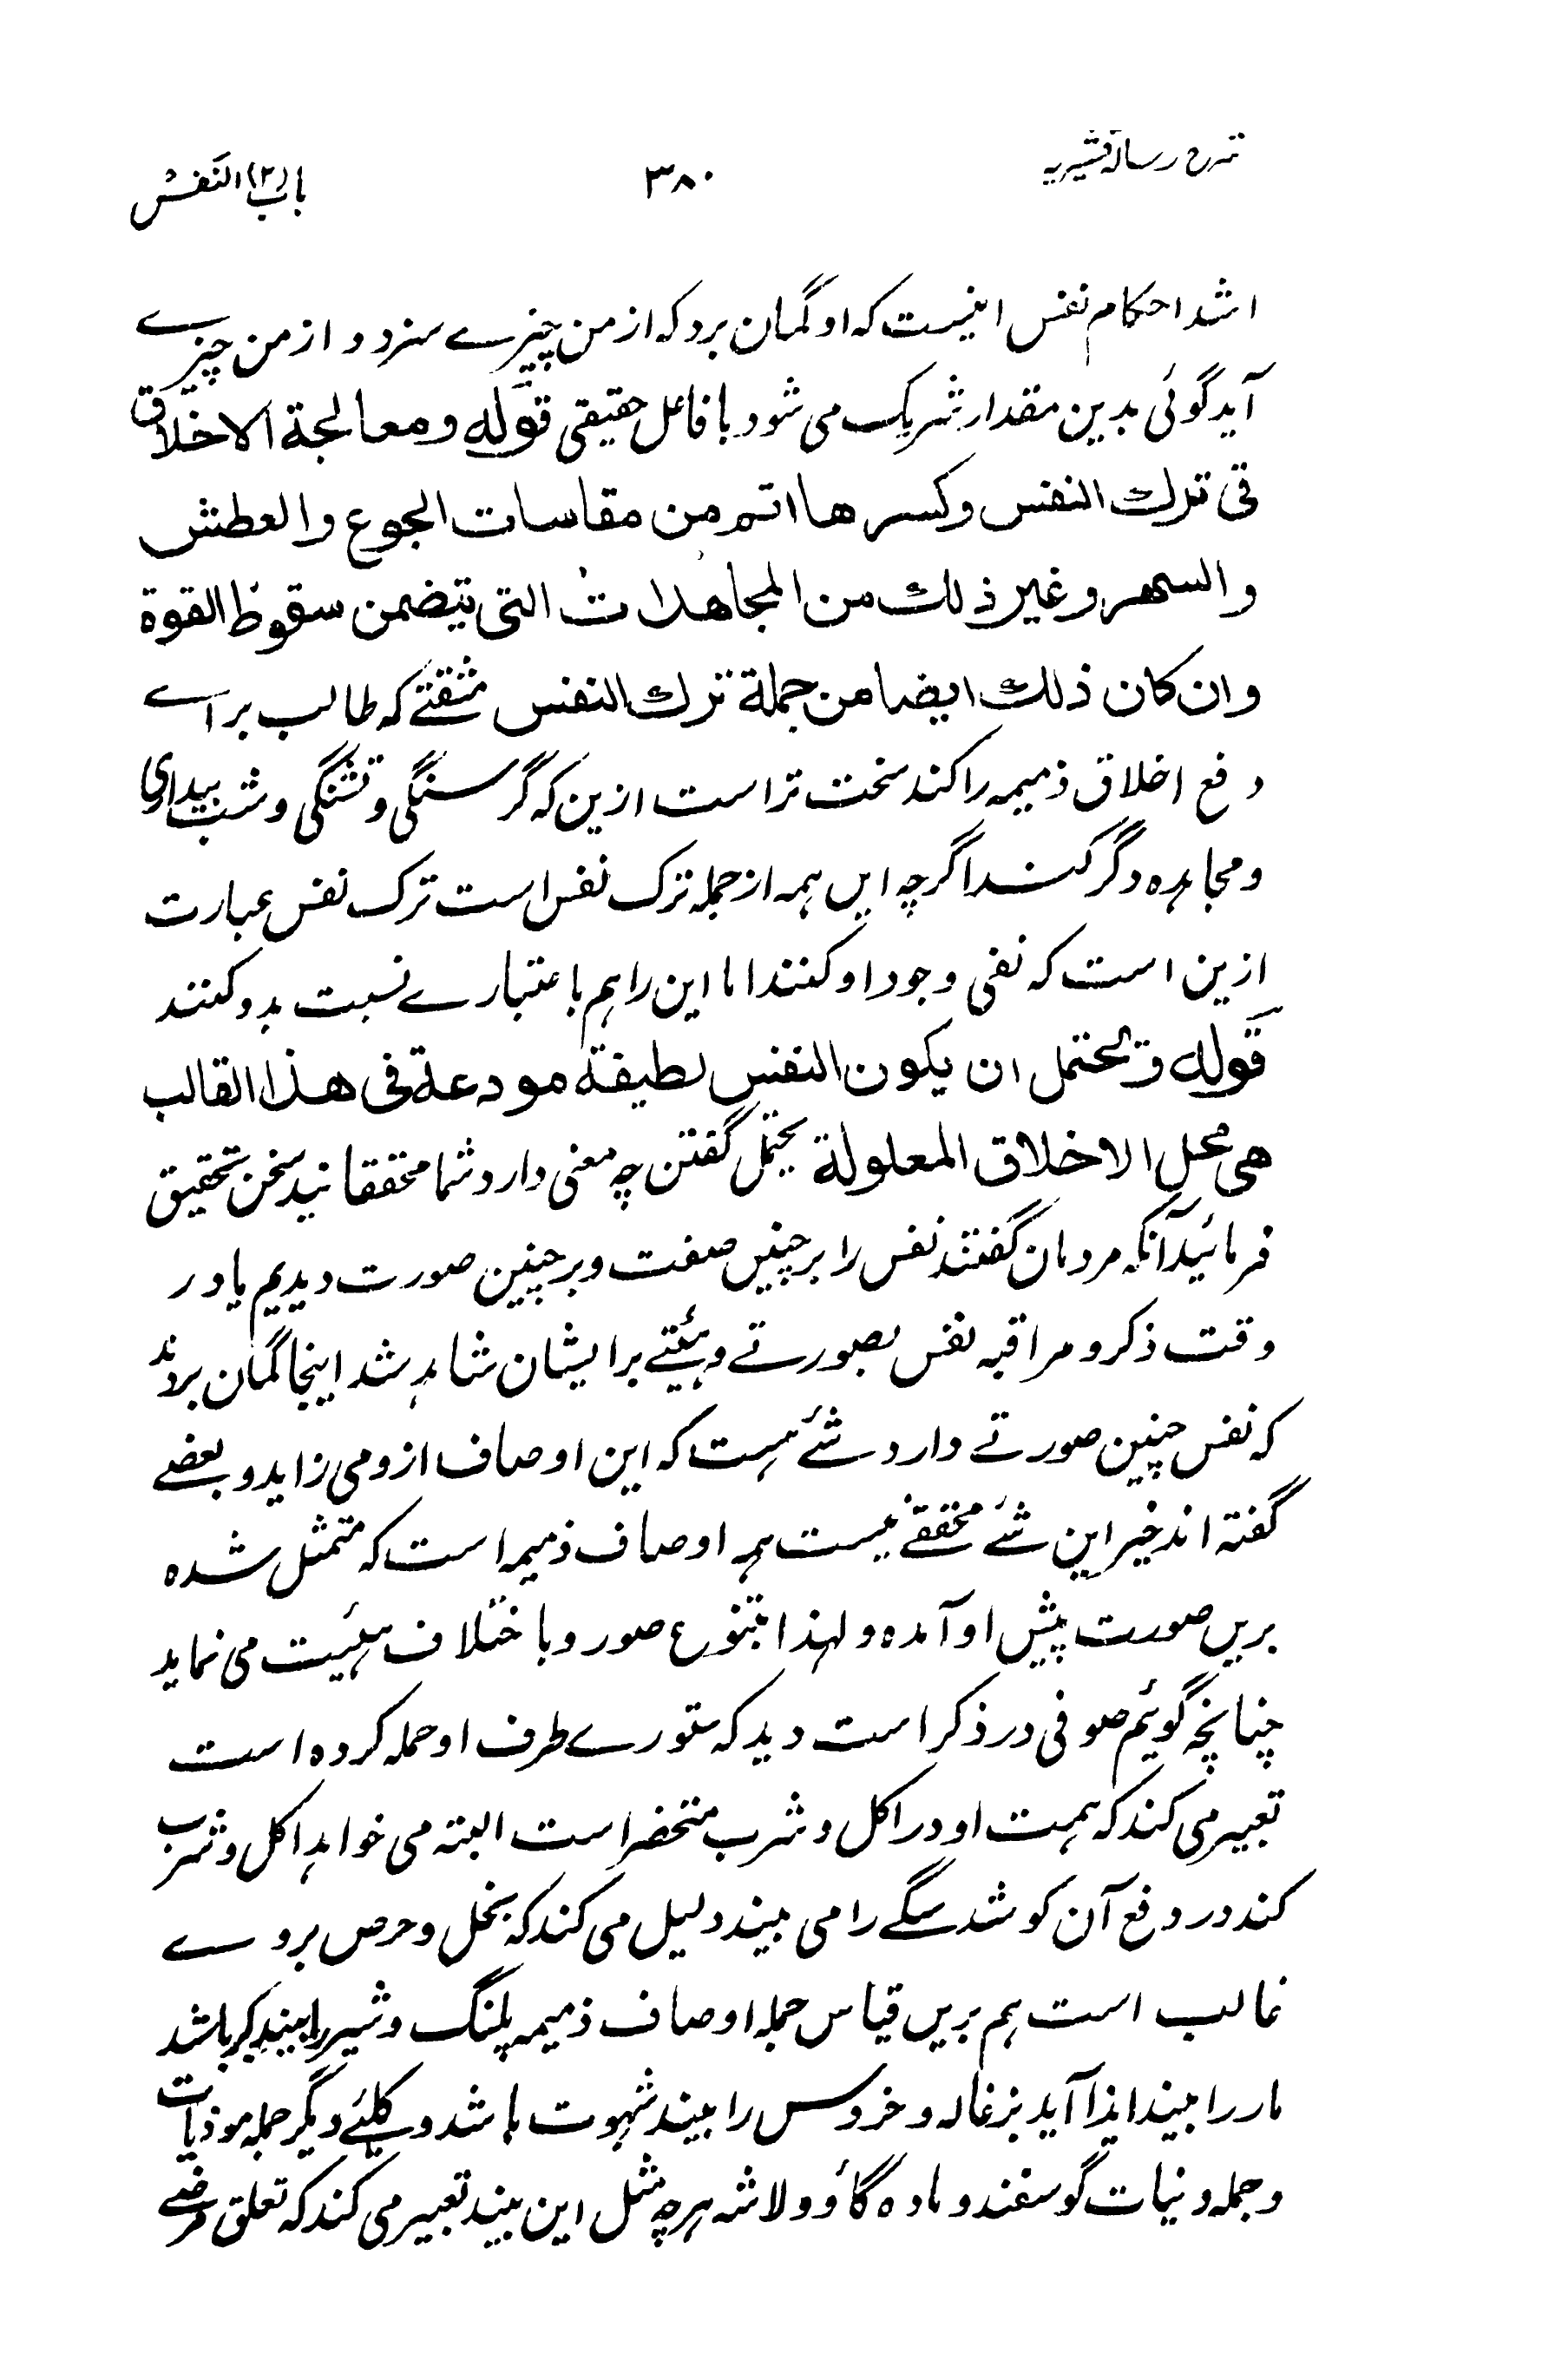 شرح رسالہ قشیریہ
۳۸۰
باب (۲) النفس
اشد احکام نفس اینست کہ او گمان برد کہ از من چیزے سزد و از من چیزے
آید گوئی بدین مقدار شریک می شود با فاعل حقیقی قوله ومعالجة الاخلاق
فی ترك النفس وکسرها اتم من مقاسات الجوع والعطش
والسهر وغیر ذلك من المجاهدات التی تیضمن سقوط القوة
وان کان ذلك ایضا من جملة ترك النفس مشقتے کہ طالب براے
دفع اخلاق ذمیمہ را کند سخت تر است ازین کہ گرسنگی و تشنگی و شب بیداری
و مجاہدہ دگر کند اگرچہ ایں ہمہ از جملہ ترک نفس است ترک نفس عبارت
ازین است کہ نفی وجود او کنند اما این را ہم باعتبارے نسبت بدو کنند
قوله ویحتمل ان یکون النفس لطیفة مودعة فی هذا القالب
هی محل الاخلاق المعلولة یحتمل گفتن چہ معنی دارد شما محققانید سخن تحقیق
فرمائید آنکہ مردمان گفتند نفس را برچنیں صفت و برچنین صورت دیدیم یا در
وقت ذکر و مراقبہ نفس بصورتے وہیئتے برایشان شاہد شد اینجا گمان بردند
کہ نفس چنین صورتے دارد شئے ہست کہ این اوصاف ازو می زاید و بعضے
گفتہ اند خیر این شئے محققے نیست ہمہ اوصاف ذمیمہ است کہ متمثل شدہ
بریں صورت پیش او آمدہ و لہذا بتنوع صور و باختلاف ہئیت می نماید
چنانچہ گوئیم صوفی در ذکر است دید کہ ستورے طرف او حملہ کردہ است
تعبیر می کند کہ ہمت او در اکل و شرب منحضر است البتہ می خواہد اکل و شرب
کند در دفع آن کوشد سگے را می بیند دلیل می کند کہ بخل و حرص بروے
غالب است ہم بریں قیاس جملہ اوصاف ذمیمہ پلنگ و شیر را بیند کبر باشد
مار را بیند ایذا آید بزغالہ و خروس را بیند شہوت باشد و دیگر جملہ موذیات
و جملہ دنیات گوسفند و مادہ گاؤ و لاشہ ہرچہ مثل این بیند تعبیر می کند کہ تعلق